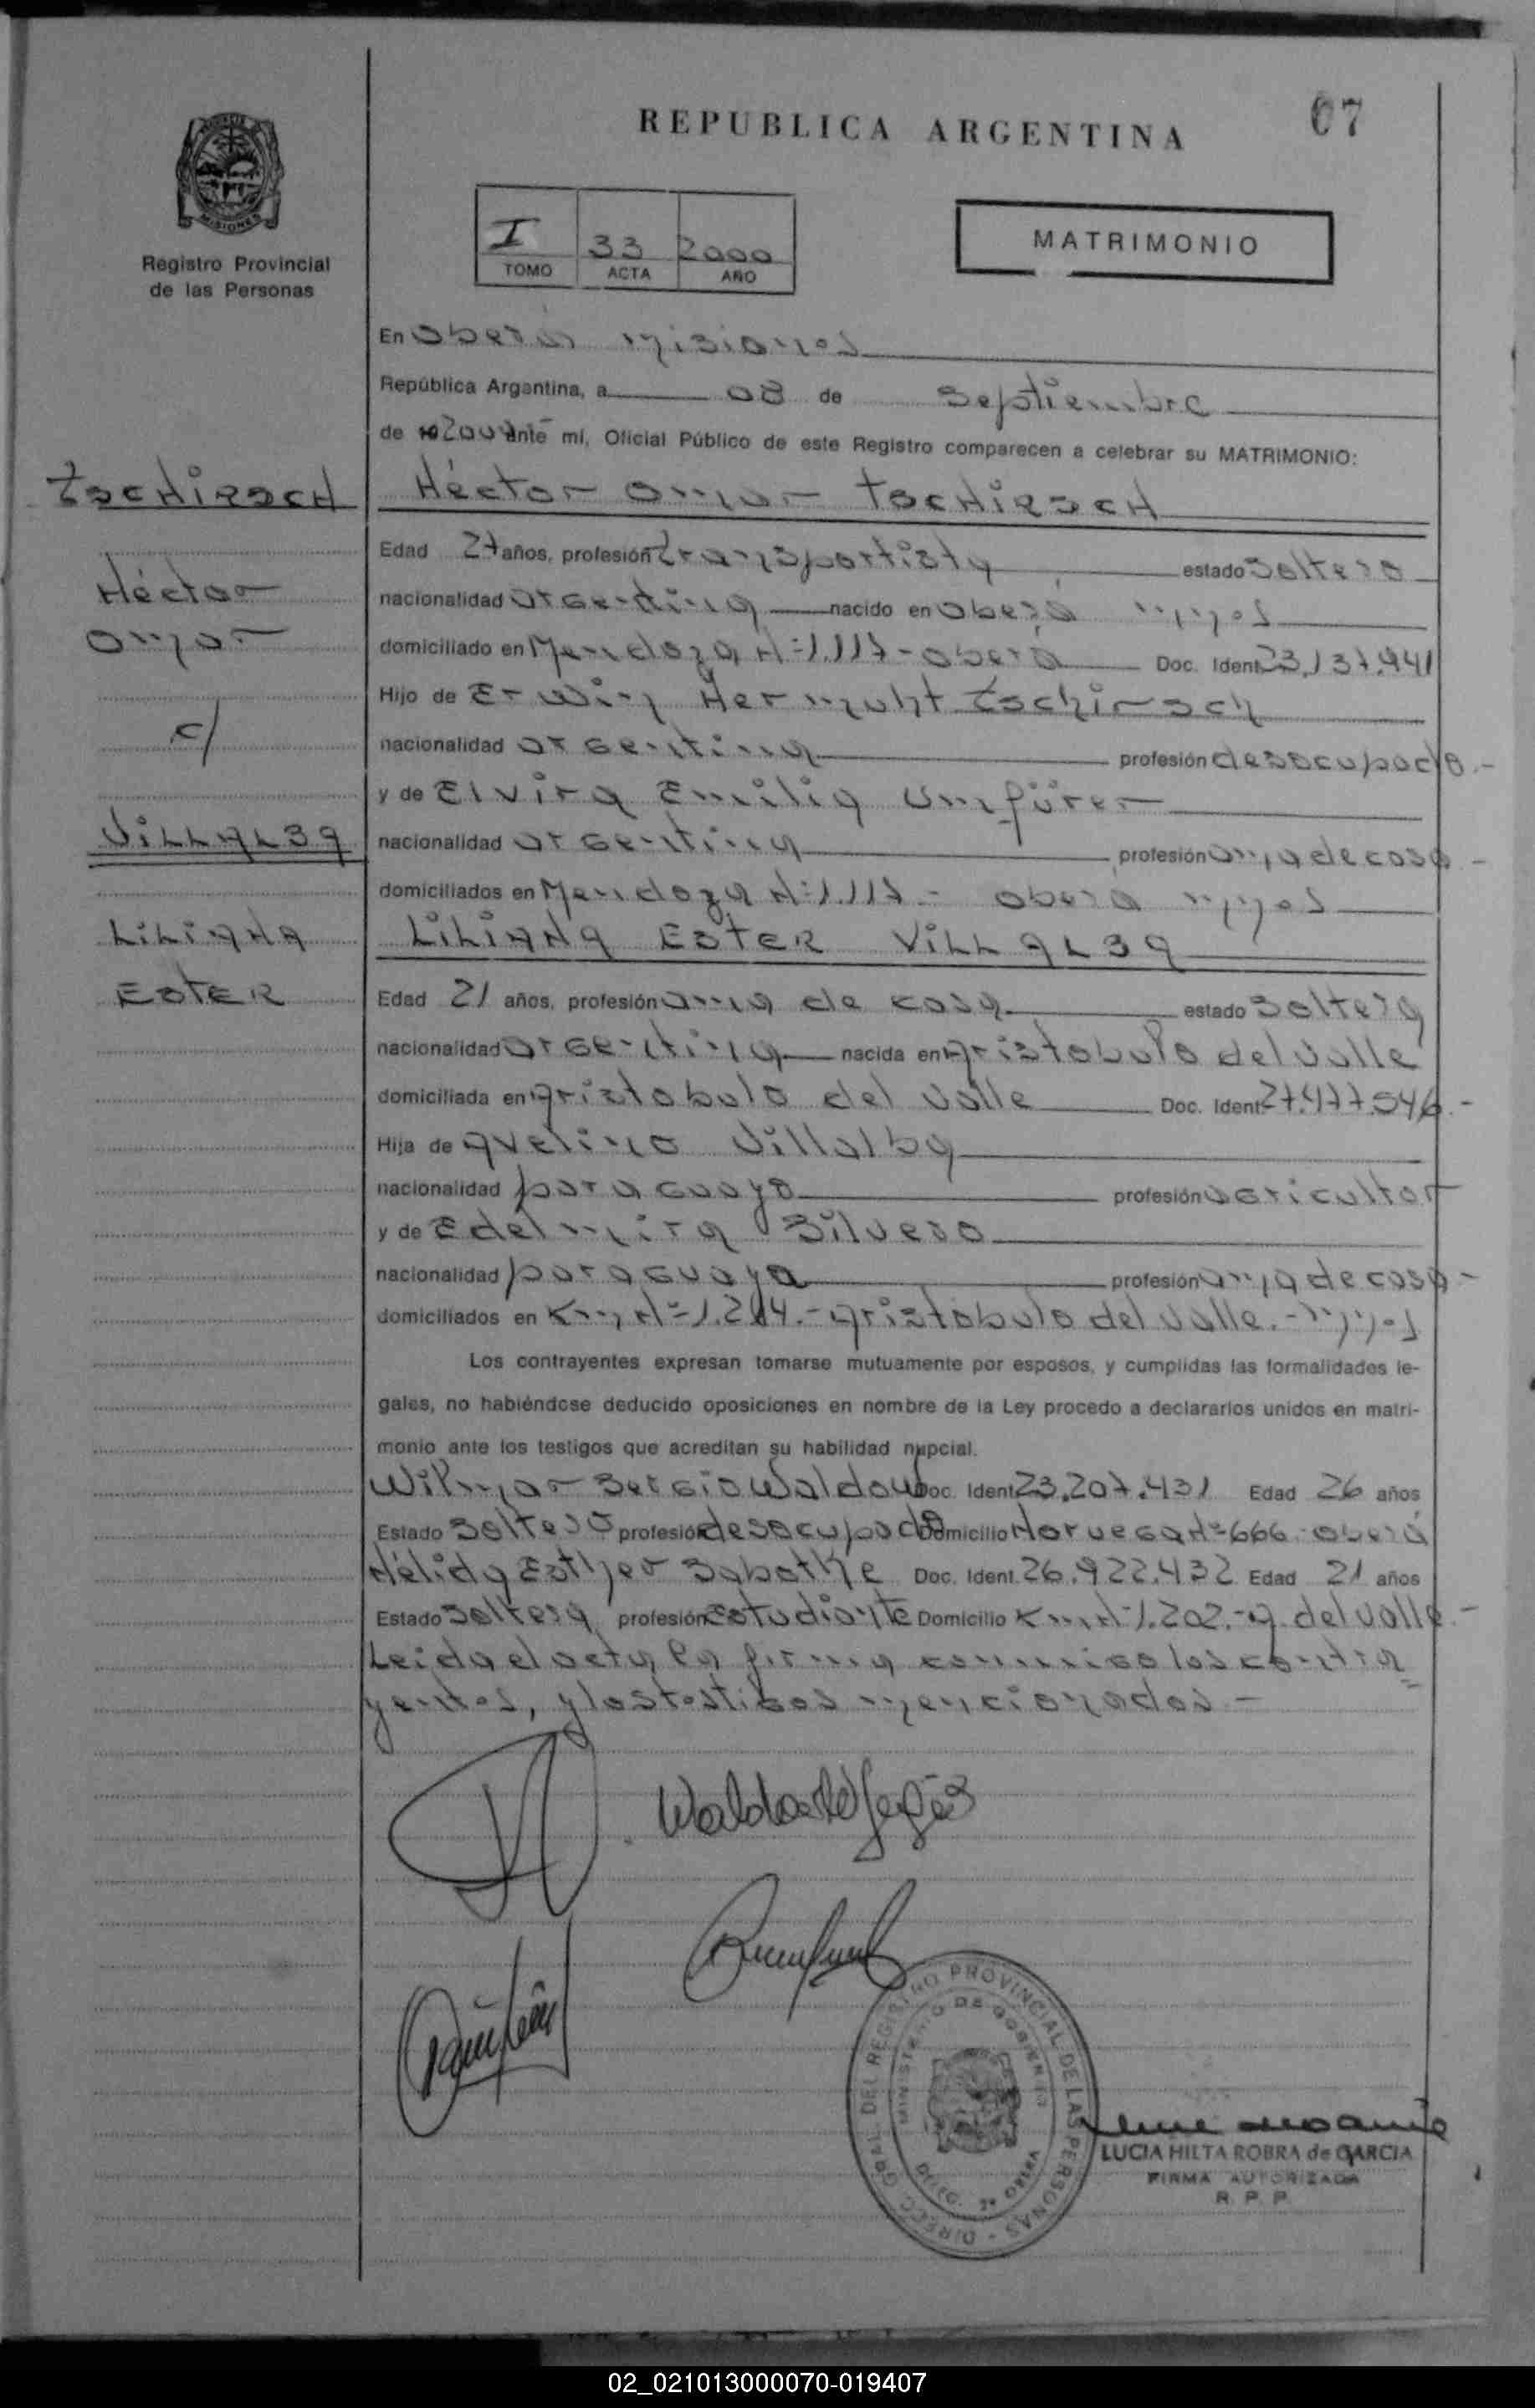 REPUBLICA ARGENTINA
67
MISIONES
Registro Provincial
de las Personas
I 33 2000
TOMO ACTA AÑO
MATRIMONIO
En Oberá Misiones
República Argentina, a 08 de Septiembre
de 19 2000 ante mí, Oficial Público de este Registro comparecen a celebrar su MATRIMONIO:
Tschirsch
Héctor Omar Tschirsch
Edad 27 años, profesión transportista estado soltero
Héctor
nacionalidad argentina nacido en Oberá Mnes
Omar
domiciliado en Mendoza N=1.117 - Oberá Doc. Ident. 23.137.941
Hijo de Erwin Hermuht Tschirsch
c/
nacionalidad argentina profesión desocupado.-
y de Elvira Emilia Umfürer
Villalba
nacionalidad argentina profesión ama de casa -
domiciliados en Mendoza N=1.117 - Oberá Mnes
Liliana
Liliana Ester Villalba
Ester
Edad 21 años, profesión ama de casa estado soltera
nacionalidad argentina nacida en Aristobulo del Valle
domiciliada en Aristobulo del Valle Doc. Ident. 27.477.546.-
Hija de Avelino Villalba
nacionalidad paraguayo profesión agricultor
y de Edelmira Silvero
nacionalidad paraguaya profesión ama de casa -
domiciliados en Km N=1.214.- Aristobulo del Valle.- Mnes
Los contrayentes expresan tomarse mutuamente por esposos, y cumplidas las formalidades le-
gales, no habiéndose deducido oposiciones en nombre de la Ley procedo a declararlos unidos en matri-
monio ante los testigos que acreditan su habilidad nupcial.
Wilmar Sergio Waldow Doc. Ident. 23.207.431 Edad 26 años
Estado soltero profesión desocupado Domicilio Noruega N=666 - Oberá
Hélida Esther Sabothe Doc. Ident. 26.922.432 Edad 21 años
Estado soltera profesión Estudiante Domicilio Km N=1.202.- A. del Valle -
Leida el acta, la firman conmigo los contra
yentes, y los testigos mencionados -
DIRECC. GRAL. DEL REGISTRO PROVINCIAL DE LAS PERSONAS
MINISTERIO DE GOBIERNO
LUCIA HILTA ROBRA de GARCIA
FIRMA AUTORIZADA
R. P. P.
02_021013000070-019407